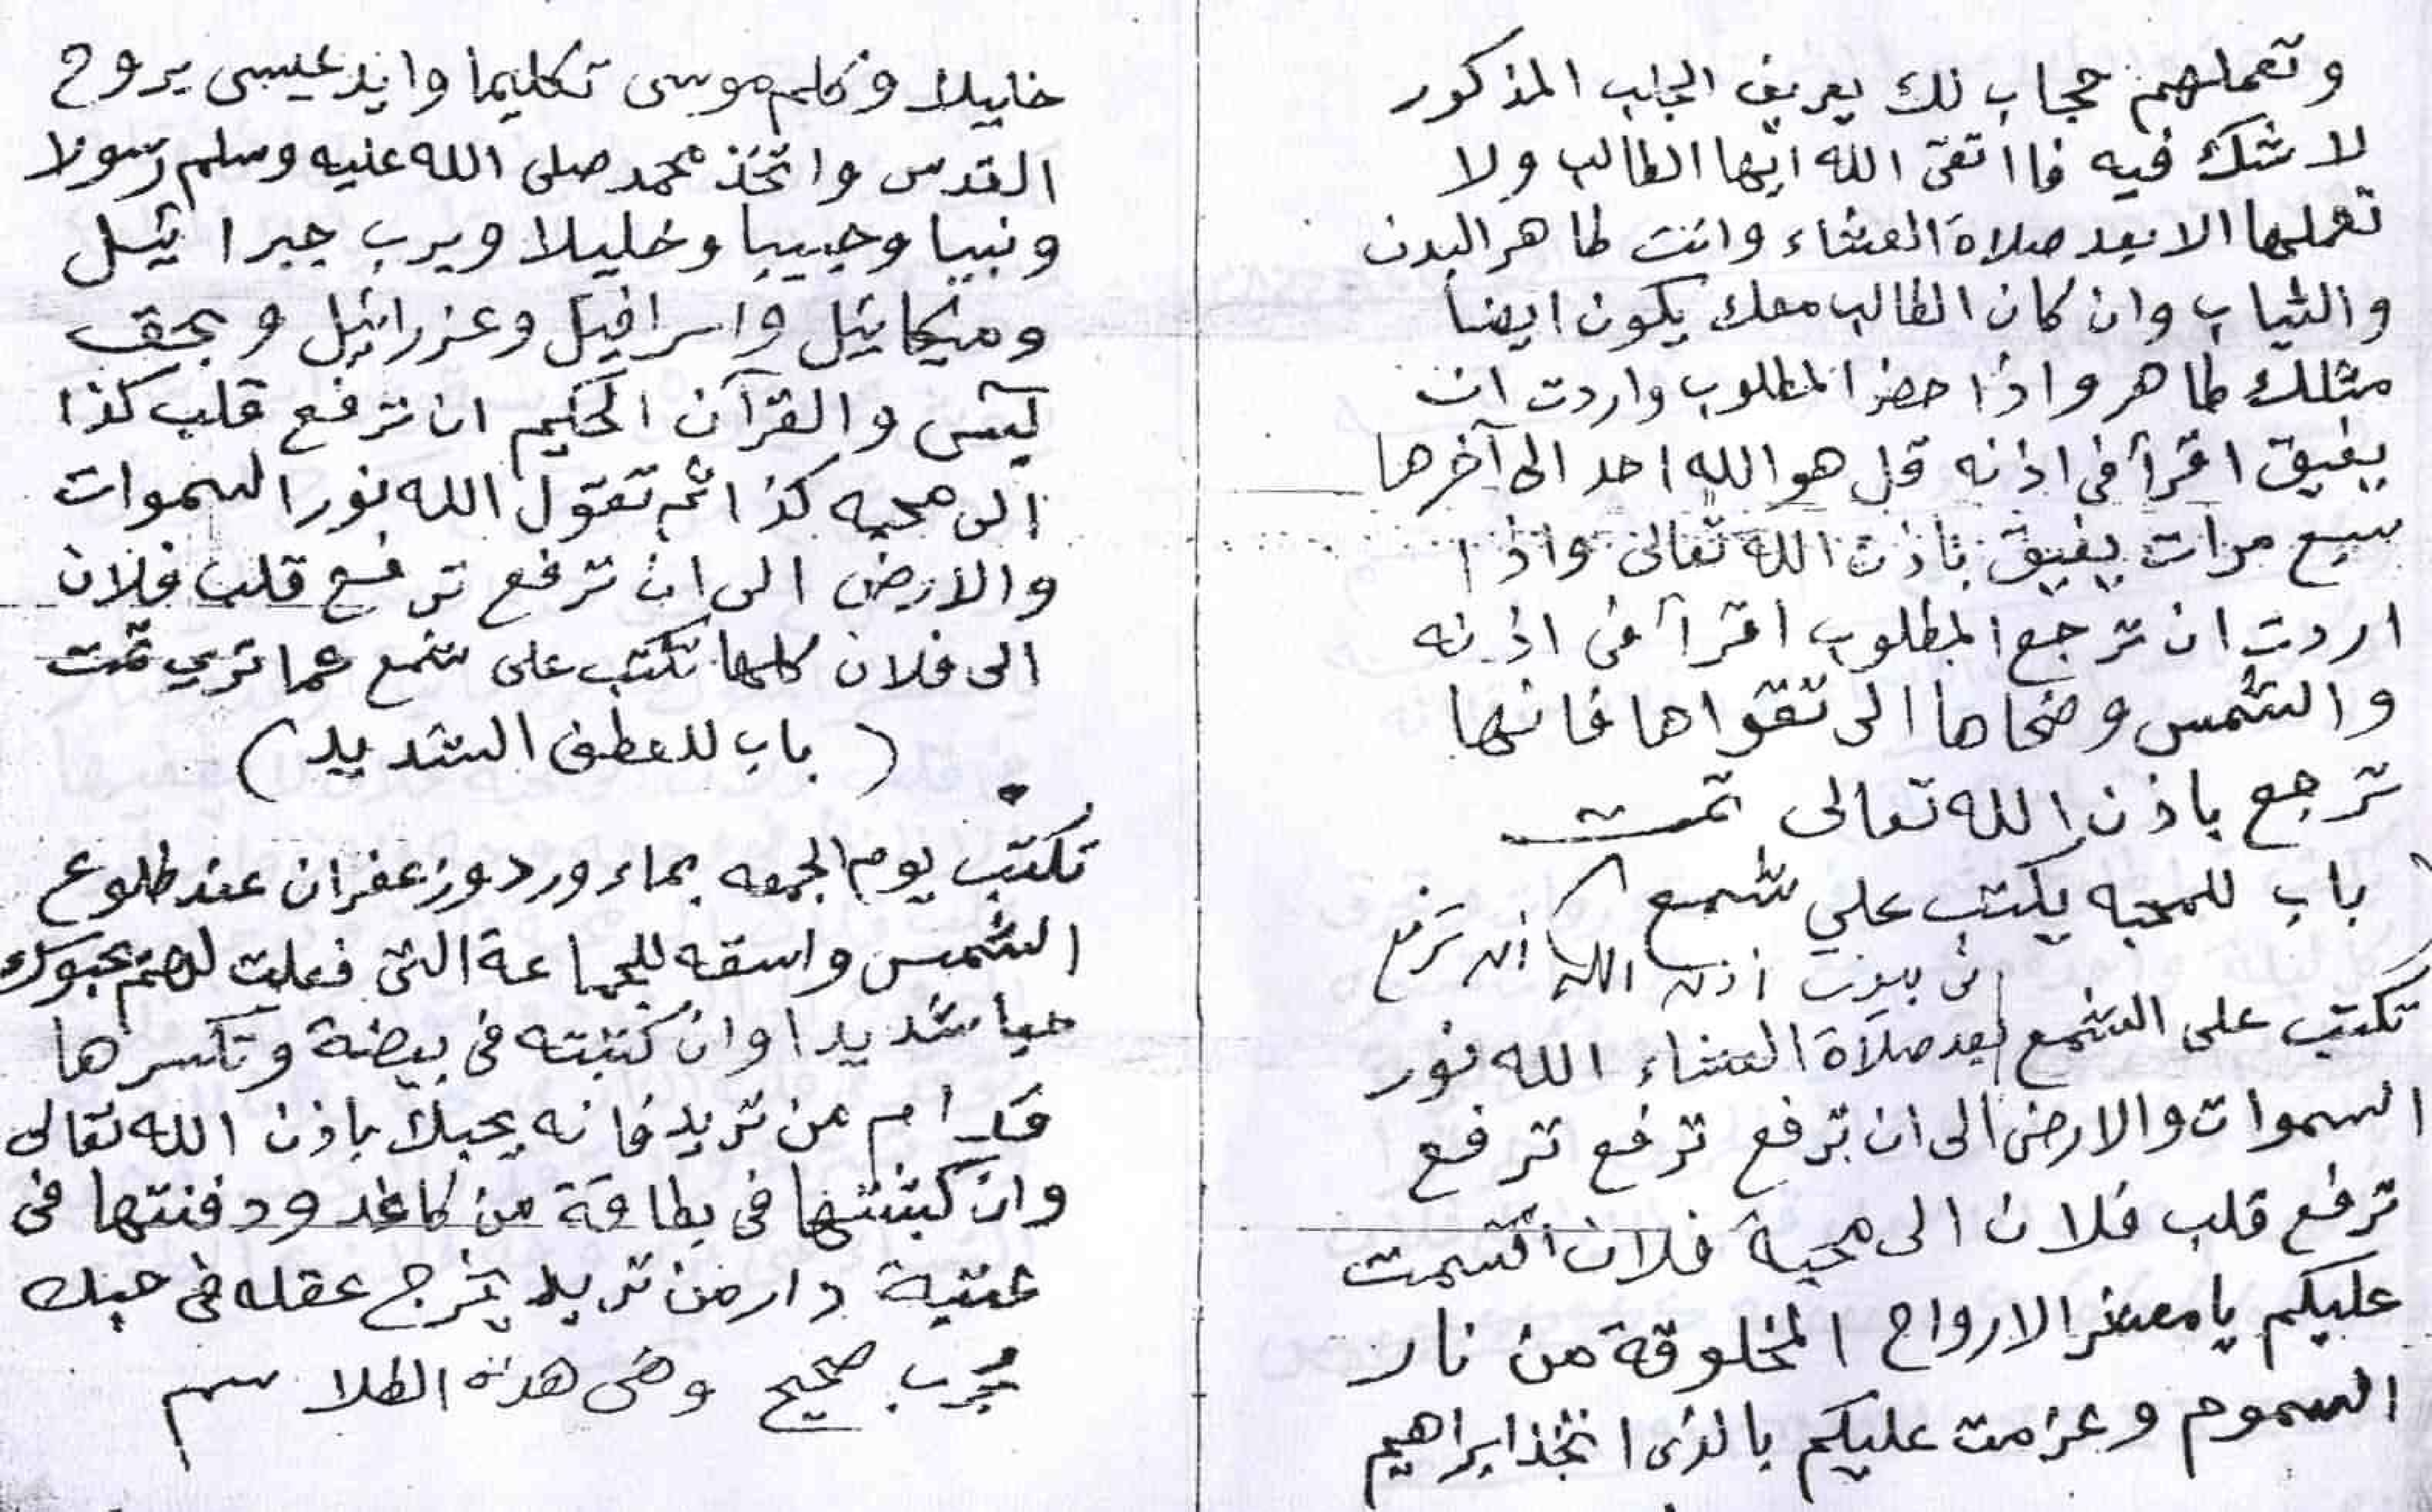 وتعملهم حجاب لك يعريف الجلب المذكور
لا شك فيه فا اتقى الله ايها الطالب ولا
تعملها الا بعد صلاة العشاء وانت طاهر البدن
والثياب وان كان الطالب معك يكون ايضا
مثلك طاهر واذا حضر المطلوب واردت ان
يفيق اقرأ فى اذنه قل هو الله احد الى آخرها
سبع مرات يفيق باذن الله تعالى واذا
اردت ان ترجع المطلوب اقرأ فى اذنه
والشمس وضحاها الى تقواها فانها
ترجع باذن الله تعالى تمت
( باب للمحبه يكتب علي شمع )
فى بيوت أذن الله أن ترفع
تكتب على الشمع بعد صلاة العشاء الله نور
السموات والارض الى ان ترفع ترفع ترفع
ترفع قلب فلان الى محبة فلان اقسمت
عليكم يا معشر الارواح المخلوقة من نار
السموم وعزمت عليكم بالذى اتخذ ابراهيم
خليلا وكلم موسى تكليما وايد عيسى بروح
القدس واتخذ محمد صلى الله عليه وسلم رسولا
ونبيا وحبيبا وخليلا وبرب جبرائيل
وميكائيل واسرافيل وعزرائيل وبحق
يس والقرآن الحكيم ان ترفع قلب كذا
الى محبه كذا ثم تقول الله نور السموات
والارض الى ان ترفع ترفع قلب فلان
الى فلان كلها تكتب على شمع عما تري تمت
( باب للعطف الشديد )
تكتب يوم الجمعه بماء ورد وزعفران عند طلوع
الشمس واسقه للجماعة التى فعلت لهم يحبوك
حبا شديدا وان كتبته فى بيضة وتكسرها
قدام من تريد فانه يحبك باذن الله تعالى
وان كتبتها فى بطاقة من كاغد ودفنتها فى
عتبة دار من تريد يخرج عقله فى حبك
مجرب صحيح وهى هذه الطلاسم